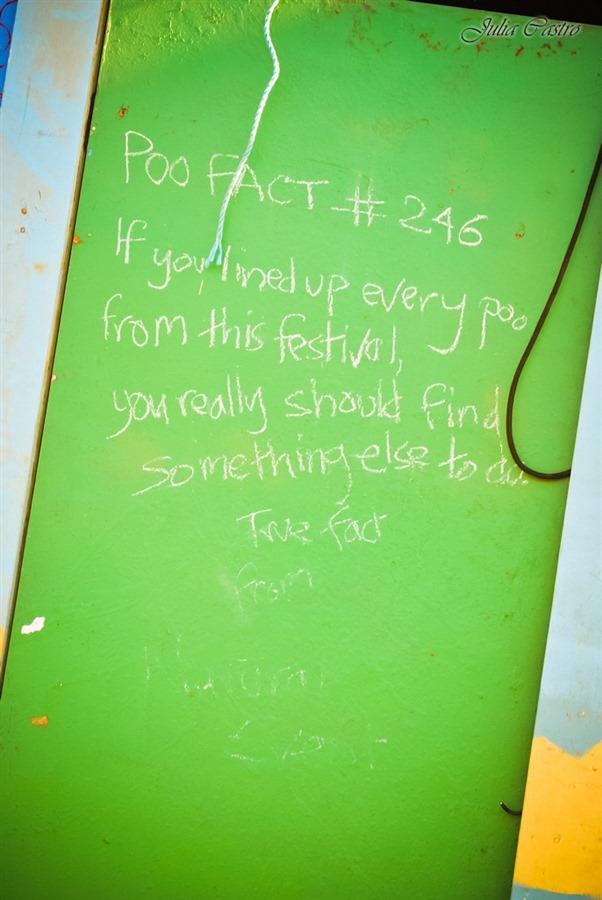 Julia Castro
Poo FACT # 246
If you lined up every poo
from this festival,
you really should find
something else to do.
True fact
from